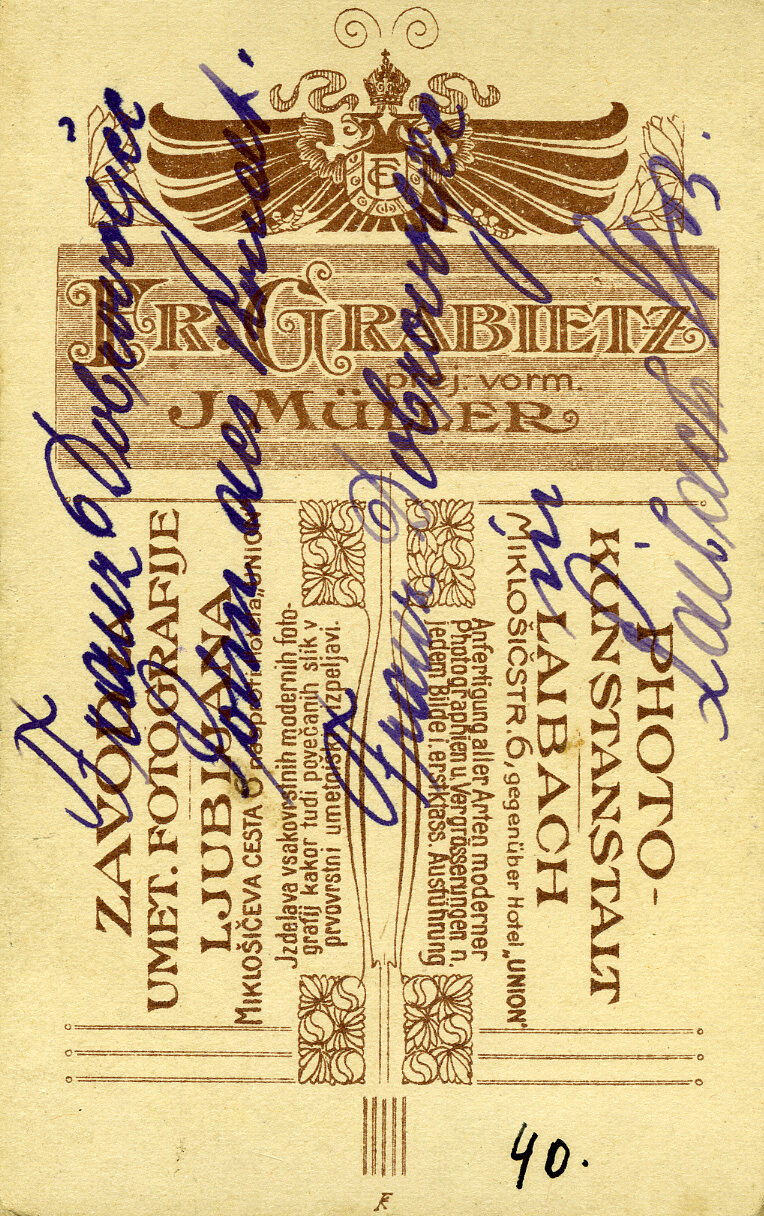 FR. GRABIETZ
prej. vorm.
J. MÜLLER
ZAVOD ZA
UMET. FOTOGRAFIJE
LJUBLJANA
MIKLOŠIČEVA CESTA 6 nasproti hotela „UNION“
Jzdelava vsakovrstnih modernih foto-
grafij kakor tudi povečanih slik v
prvovrstni umetniški izpeljavi.
PHOTO-
KUNSTANSTALT
LAIBACH
MIKLOŠIČSTR. 6, gegenüber Hotel „UNION“
Anfertigung aller Arten moderner
Photographien u. Vergrösserungen n.
jedem Bilde i. erstklass. Ausführung
Franz Dobrovoljec
Sohn des
Franz Dobrovoljec
in
Laibach
40.